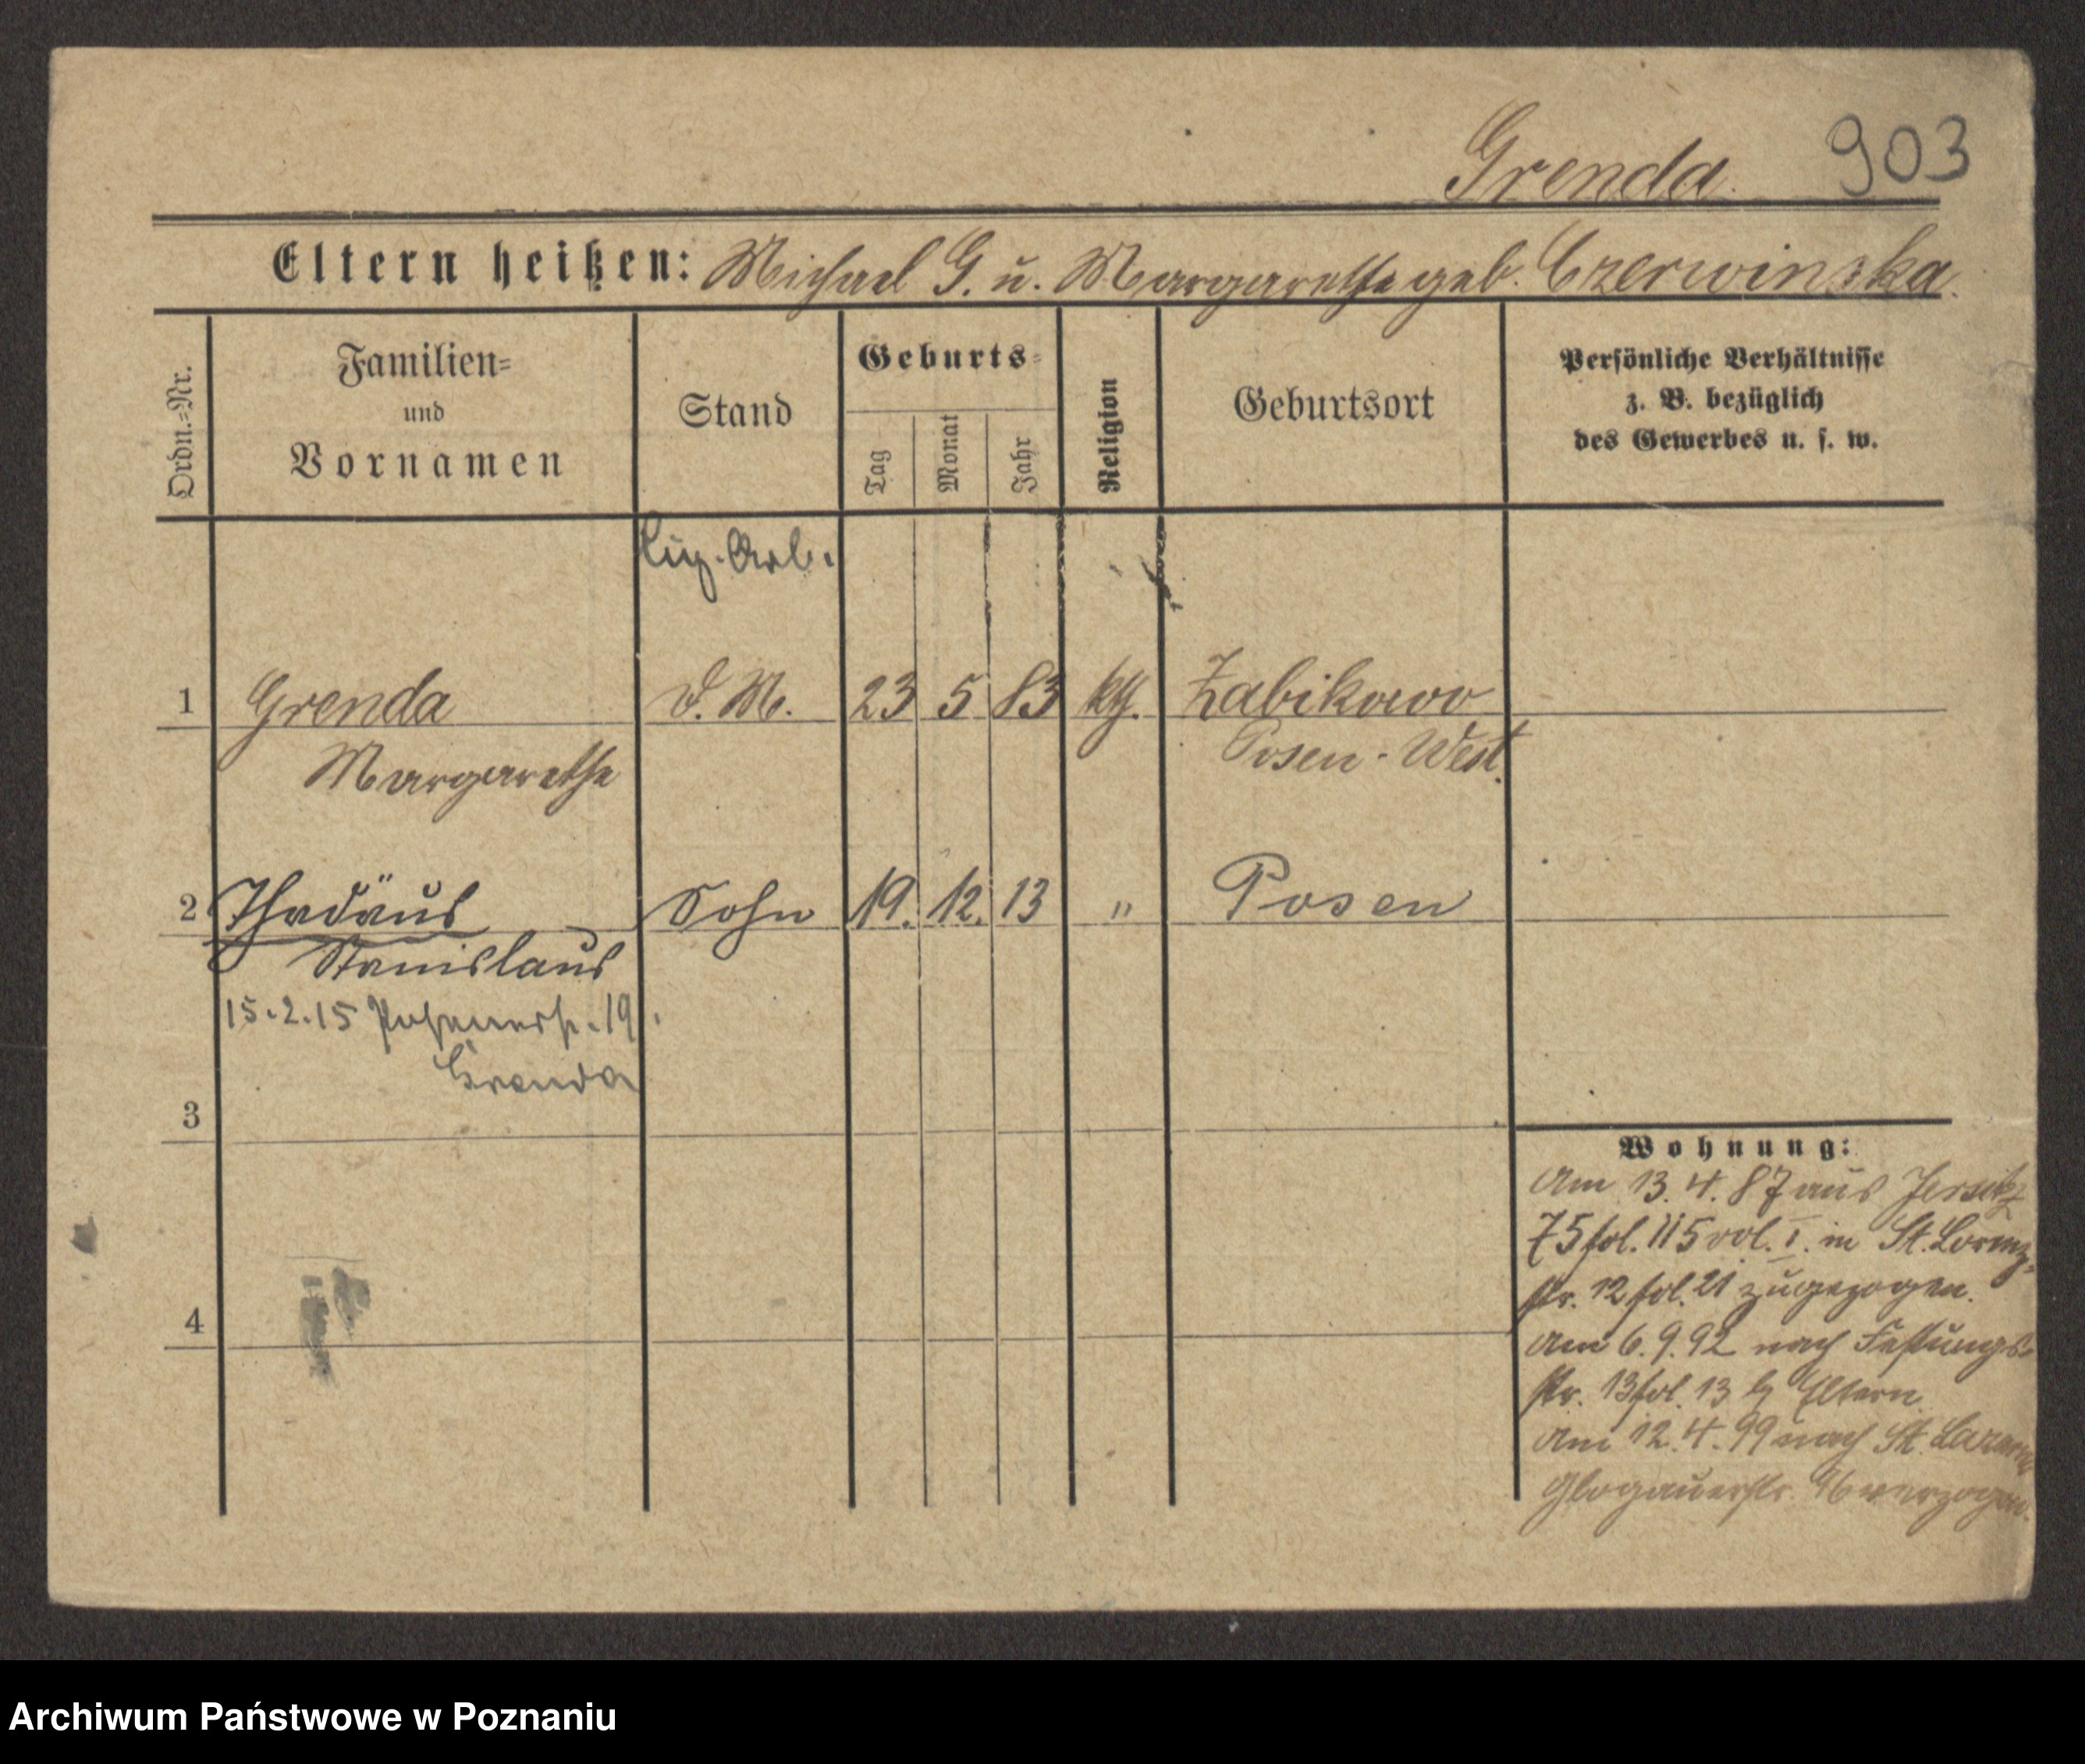 Grenda. 903
Eltern heißen: Michael G. u. Margarethe geb. Czerwinska.
Ordn.=Nr.
Familien=
und
Vornamen
Stand
Geburts=
Tag
Monat
Jahr
Religion
Geburtsort
Persönliche Verhältnisse
z. B. bezüglich
des Gewerbes u. s. w.
Cig. Arb.
1 Grenda d. M. 23 5 83 kth. Zabikowo
Margarethe Posen-West.
2 Thadäus Sohn 19. 12. 13 " Posen
Stanislaus
15.2.15 Posenerstr. 19.
Grenda
3
4
Wohnung:
Am 13.4.87 aus Jersitz
75 fol. 115 vol. I. in St. Lorenz-
str. 12 fol. 21 zugezogen.
Am 6.9.92 nach Festungs-
str. 13 fol. 13 Eltern
Am 12.4.99 nach St. Lazarus
Glogauerstr. 96 verzogen.
Archiwum Państwowe w Poznaniu